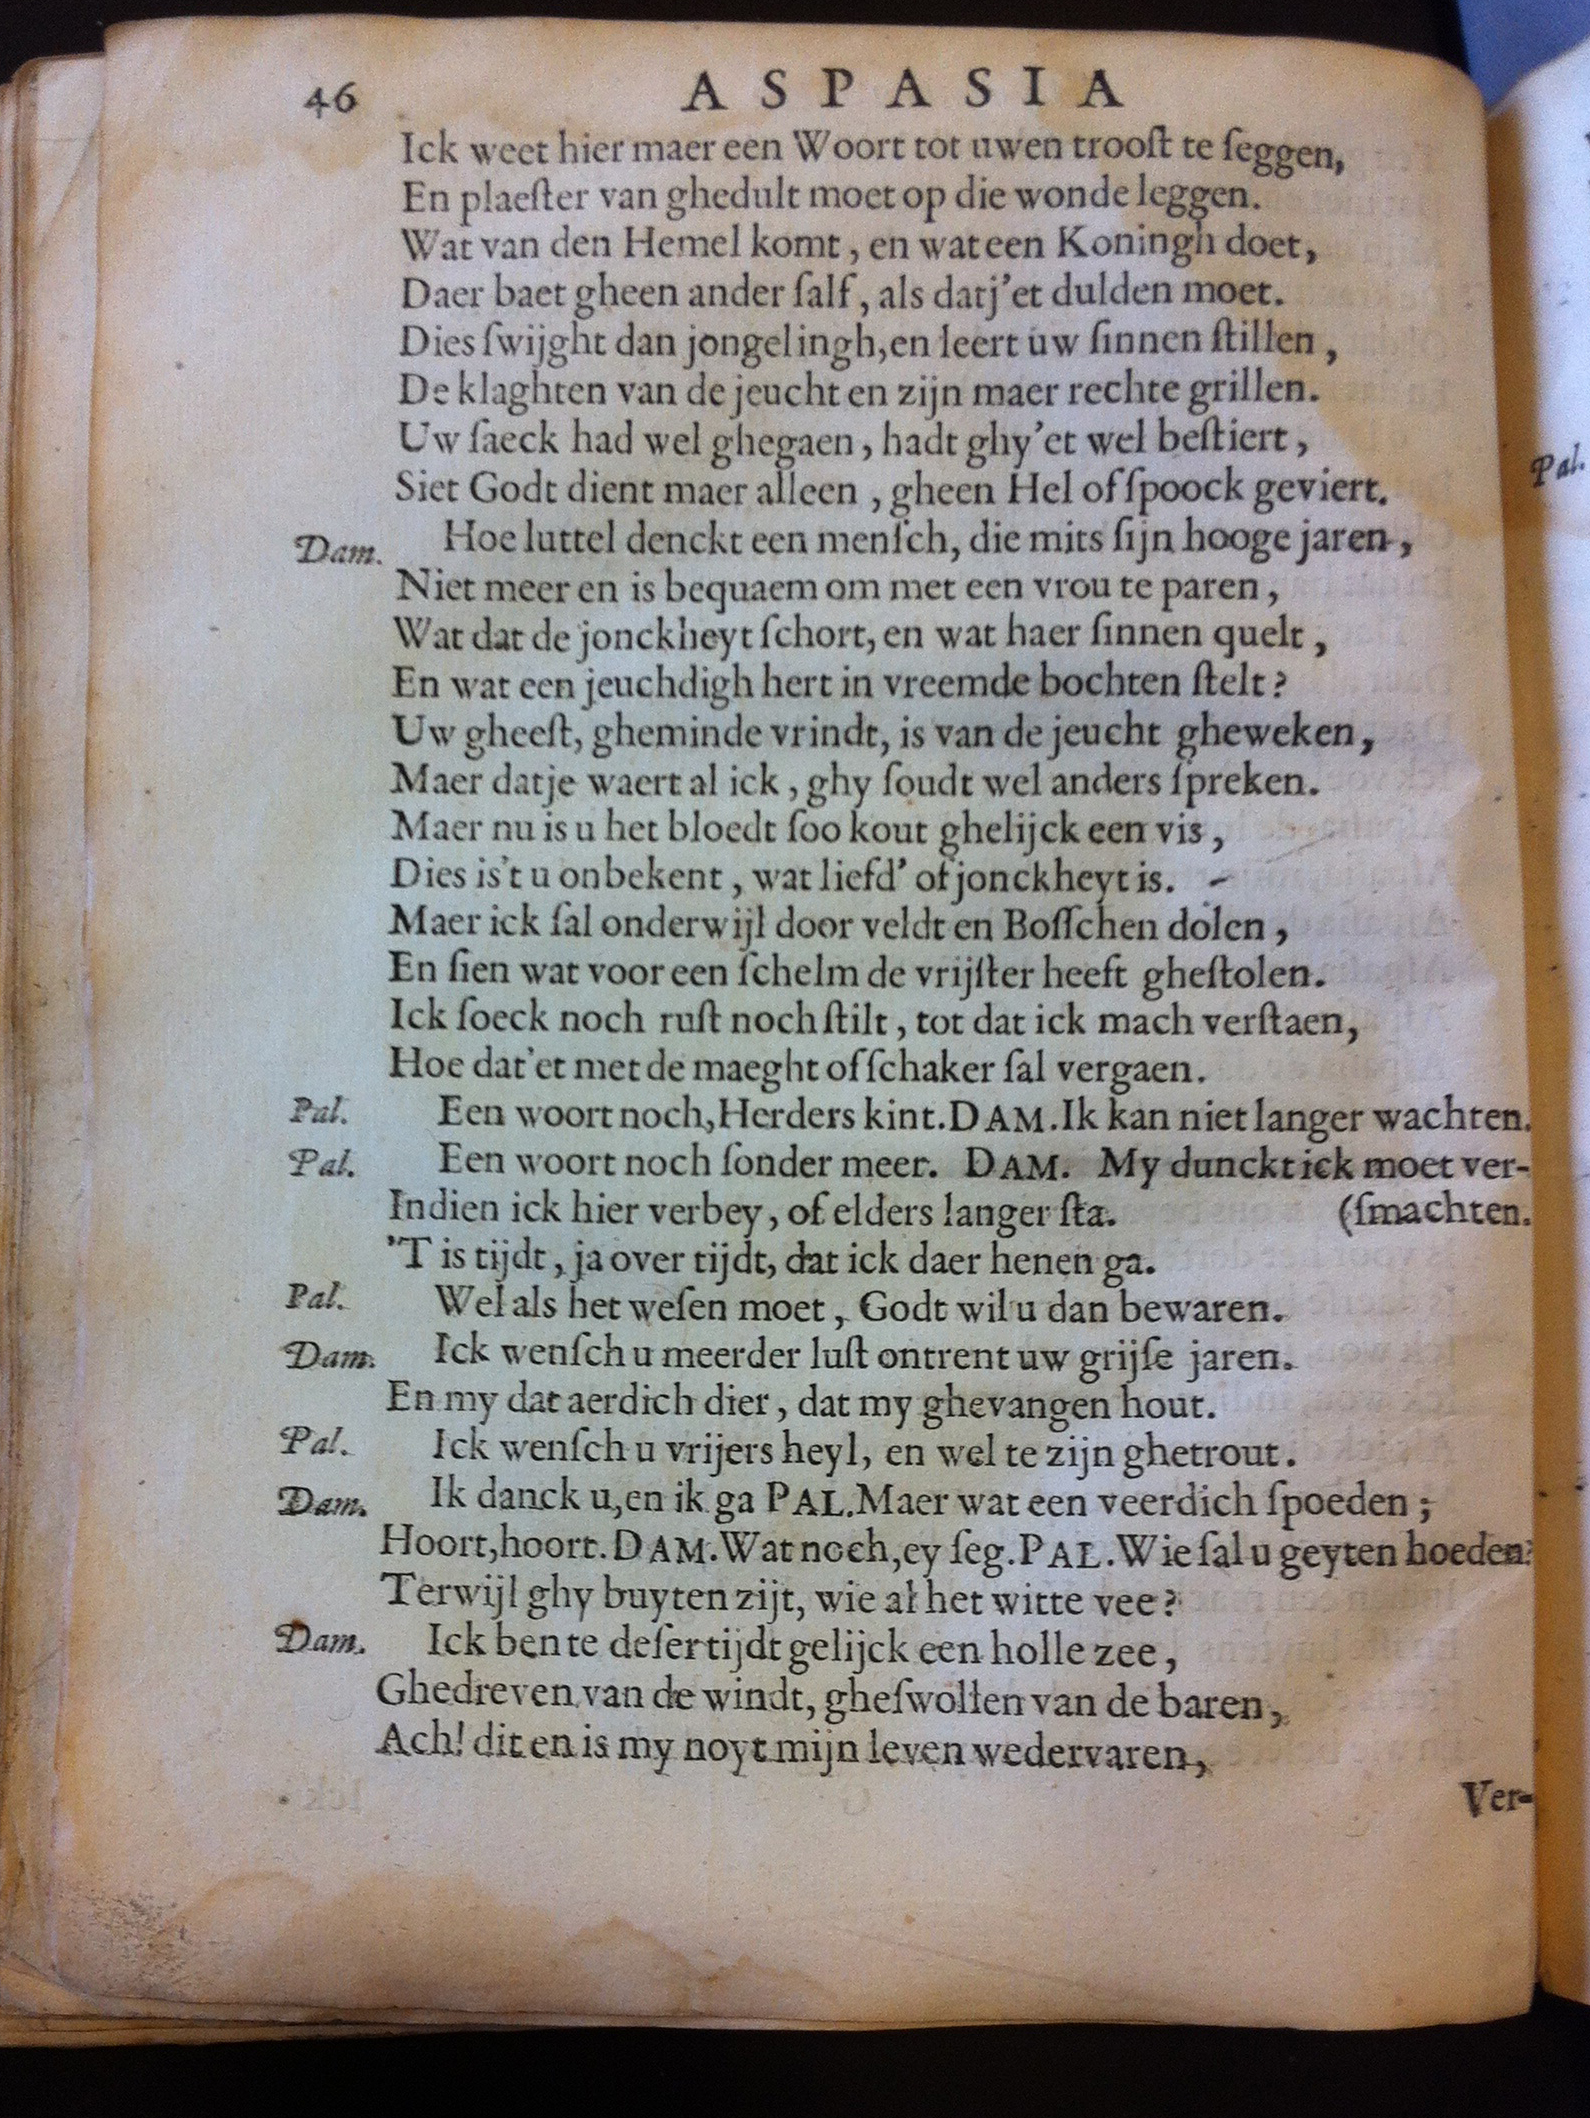 46 ASPASIA
Ick weet hier maer een Woort tot uwen trooſt te ſeggen,
En plaeſter van ghedult moet op die wonde leggen.
Wat van den Hemel komt, en wat een Koningh doet,
Daer baet gheen ander ſalf, als datj'et dulden moet.
Dies ſwijght dan jongelingh, en leert uw ſinnen ſtillen,
De klaghten van de jeucht en zijn maer rechte grillen.
Uw ſaeck had wel ghegaen, hadt ghy'et wel beſtiert,
Siet Godt dient maer alleen, gheen Hel of ſpoock geviert.
Dam. Hoe luttel denckt een menſch, die mits ſijn hooge jaren,
Niet meer en is bequaem om met een vrou te paren,
Wat dat de jonckheyt ſchort, en wat haer ſinnen quelt,
En wat een jeuchdigh hert in vreemde bochten ſtelt?
Uw gheeſt, gheminde vrindt, is van de jeucht gheweken,
Maer datje waert al ick, ghy ſoudt wel anders ſpreken.
Maer nu is u het bloedt ſoo kout ghelijck een vis,
Dies is't u onbekent, wat liefd' of jonckheyt is.
Maer ick ſal onderwijl door veldt en Boſſchen dolen,
En ſien wat voor een ſchelm de vrijſter heeft gheſtolen.
Ick ſoeck noch ruſt noch ſtilt, tot dat ick mach verſtaen,
Hoe dat'et met de maeght of ſchaker ſal vergaen.
Pal. Een woort noch, Herders kint. DAM. Ik kan niet langer wachten.
Pal. Een woort noch ſonder meer. DAM. My dunckt ick moet ver-
Indien ick hier verbey, of elders langer ſta. (ſmachten.
'T is tijdt, ja over tijdt, dat ick daer henen ga.
Pal. Wel als het weſen moet, Godt wil u dan bewaren.
Dam. Ick wenſch u meerder luſt ontrent uw grijſe jaren.
En my dat aerdich dier, dat my ghevangen hout.
Pal. Ick wenſch u vrijers heyl, en wel te zijn ghetrout.
Dam. Ik danck u, en ik ga PAL. Maer wat een veerdich ſpoeden;
Hoort, hoort. DAM. Wat noch, ey ſeg. PAL. Wie ſal u geyten hoeden?
Terwijl ghy buyten zijt, wie al het witte vee?
Dam. Ick ben te deſer tijdt gelijck een holle zee,
Ghedreven van de windt, gheſwollen van de baren,
Ach! dit en is my noyt mijn leven wedervaren,
Ver-
Pal.